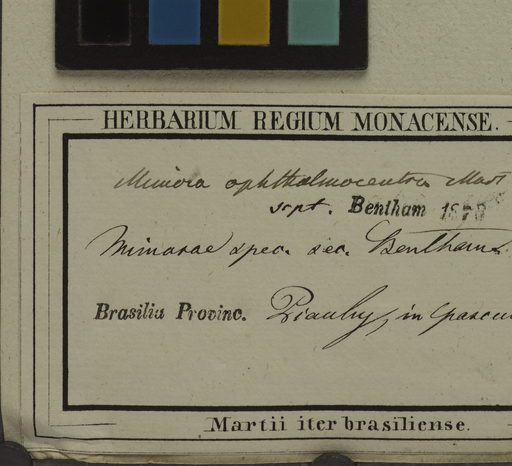 HERBARIUM REGIUM MONACENSE.
Mimosa ophthalmocentra Mart
scpt. Bentham 18
Mimosae spec. sec. Bentham.
Brasilia Provinc. Piauhy, in pascu
Martii iter brasiliense.